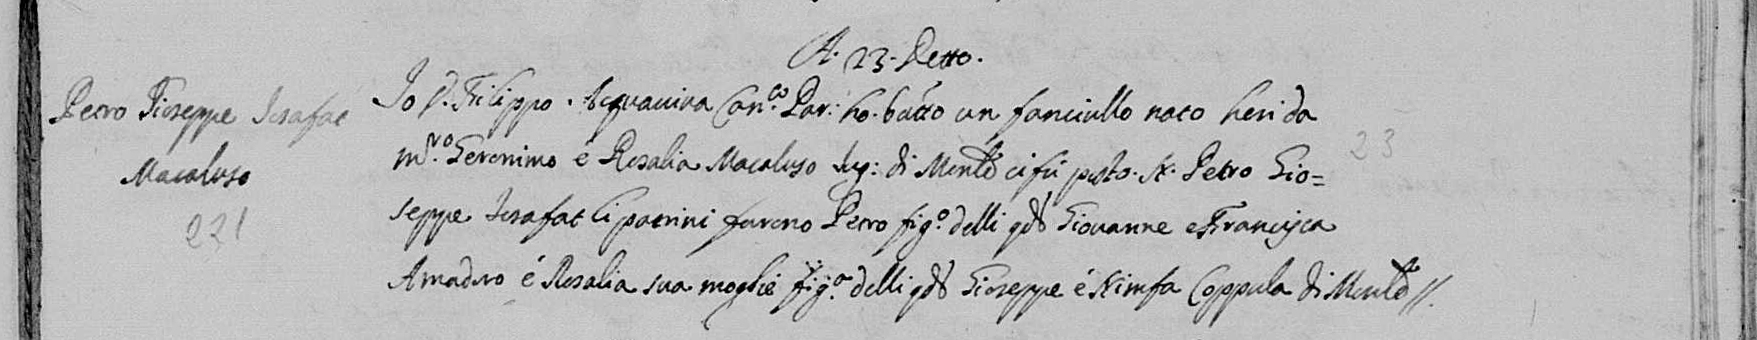 A. 23. Detto.
Petro Gioseppe Iosafat
Macaluso
221
Io D. Filippo Acquaviva Can.co Par: ho batto un fanciullo nato heri da
m.ro Geronimo é Rosalia Macaluso Iug: di Monte ci fù posto N. Petro Gio=
23
seppe Iosafat li patrini furono Petro fig.o delli qd Giovanne e Francisca
Amadeo é Rosalia sua moglie fig.a delli qd Gioseppe é Nimfa Coppula di Monte //.